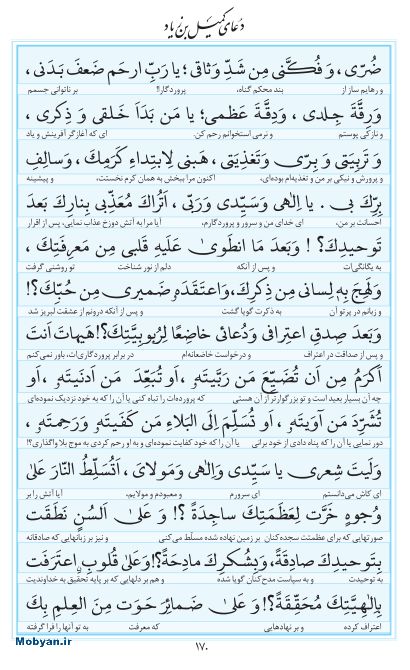 دعای کمیل بن زیاد
ضُرّی، وَ فُكَّنی مِن شَدِّ وَثاقی؛ یا رَبِّ ارحَم ضَعفَ بَدَنی،
و رهایم ساز از بند محکم گناه، پروردگارا! بر ناتوانی جسمم
وَ رِقَّةَ جِلدی، وَ دِقَّةَ عَظمی؛ یا مَن بَدَاَ خَلقی وَ ذِكری،
و نازکی پوستم و نرمی استخوانم رحم کن. ای که آغازگر آفرینش و یاد
وَ تَربِیَتی وَ بِرّی وَ تَغذِیَتی، هَبنی لِابتِداءِ كَرَمِكَ، وَ سالِفِ
و پرورش و نیکی بر من و تغذیه‌ام بوده‌ای، اکنون مرا ببخش به همان کرم نخستت، و پیشینه
بِرِّكَ بی. یا اِلٰهی وَ سَیِّدی وَ رَبّی، اَتُراكَ مُعَذِّبی بِنارِكَ بَعدَ
احسانت بر من، ای خدای من و سرور و پروردگارم، آیا مرا به آتش دوزخ عذاب نمایی، پس از اقرار
تَوحیدِكَ؟! وَ بَعدَ مَا انطَوىٰ عَلَیهِ قَلبی مِن مَعرِفَتِكَ،
به یگانگی‌ات و پس از آنکه دلم از نور شناخت تو روشنی گرفت
وَ لَهِجَ بِهِ لِسانی مِن ذِكرِكَ، وَ اعتَقَدَهُ ضَمیری مِن حُبِّكَ؟!
و زبانم در پرتو آن به ذکرت گویا گشت و پس از آنکه درونم از عشقت لبریز شد
وَ بَعدَ صِدقِ اعتِرافی وَ دُعائی خاضِعًا لِرُبوبِیَّتِكَ؟! هَیهاتَ اَنتَ
و پس از صداقت در اعتراف و درخواست خاضعانه‌ام در برابر پروردگاری‌ات، باور نمی‌کنم
اَكرَمُ مِن اَن تُضَیِّعَ مَن رَبَّیتَهُ، اَو تُبَعِّدَ مَن اَدنَیتَهُ، اَو
چه آن بسیار بعید است و تو بزرگوارتر از آن هستی که پرورده‌ات را تباه کنی یا آن را که به خود نزدیک نموده‌ای
تُشَرِّدَ مَن آوَیتَهُ، اَو تُسَلِّمَ اِلَی البَلاءِ مَن كَفَیتَهُ وَ رَحِمتَهُ،
دور نمایی یا آن را که پناه دادی از خود برانی یا آن را که خود کفایت نموده‌ای و به او رحم کردی به موج بلا واگذاری؟!
وَ لَیتَ شِعری یا سَیِّدی وَ اِلٰهی وَ مَولایَ، اَتُسَلِّطُ النّارَ عَلىٰ
ای کاش می‌دانستم ای سرورم و معبودم و مولایم، آیا آتش را بر
وُجوهٍ خَرَّت لِعَظَمَتِكَ ساجِدَةً؟! وَ عَلىٰ اَلسُنٍ نَطَقَت
صورتهایی که برای عظمتت سجده‌کنان بر زمین نهاده شده مسلط می‌کنی و نیز بر زبانهایی که صادقانه
بِتَوحیدِكَ صادِقَةً، وَ بِشُكرِكَ مادِحَةً؟! وَ عَلىٰ قُلوبٍ اعتَرَفَت
به توحیدت و به سپاست مدح‌کنان گویا شده و هم بر دلهایی که بر پایه تحقیق به خداوندیت
بِاِلٰهِیَّتِكَ مُحَقِّقَةً؟! وَ عَلىٰ ضَمائِرَ حَوَت مِنَ العِلمِ بِكَ
اعتراف کرده و بر نهادهایی که معرفت به تو آنها را فرا گرفته
۱۷۰
Mobyan.ir